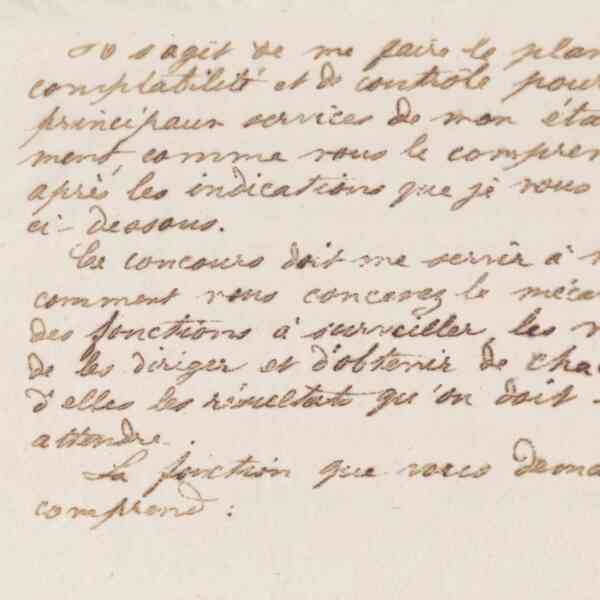 Il s'agit de me faire le plan
comptabilité et de contrôle pour
principaux services de mon éta
ment comme vous le compren
après les indications que je vous
ci-dessous.
Ce concours doit me servir à
comment vous concevez le méca
des fonctions à surveiller, les
de les diriger et d'obtenir de cha
d'elles les résultats qu'on doit
attendre.
La fonction que vous dema
comprend :